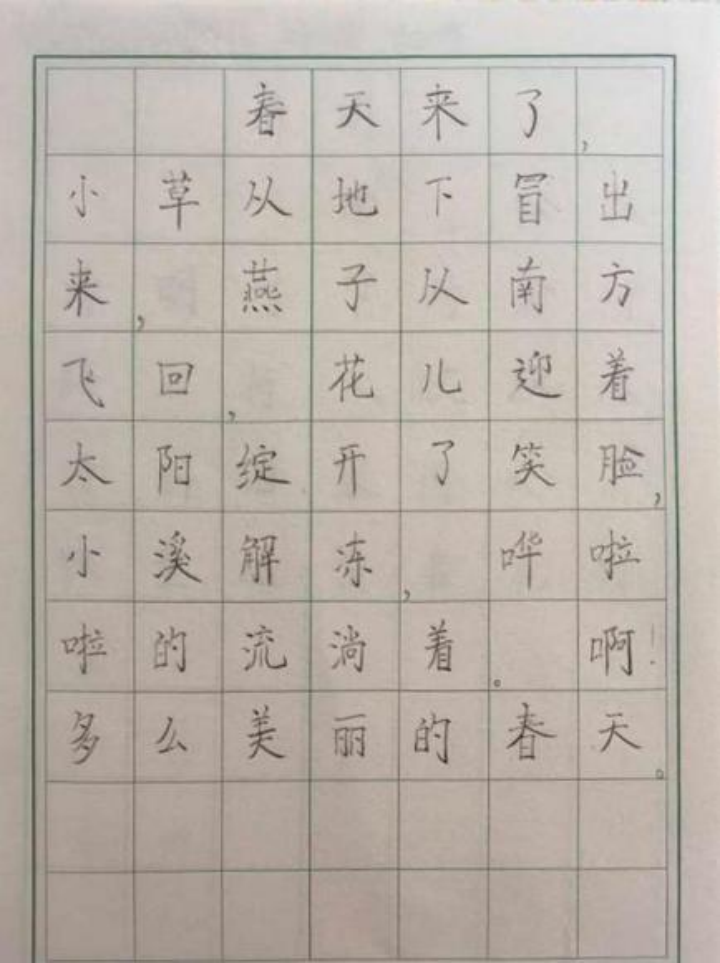 春天来了，
小草从地下冒出
来，燕子从南方
飞回，花儿迎着
太阳绽开了笑脸，
小溪解冻，哗啦
啦的流淌着。啊！
多么美丽的春天。